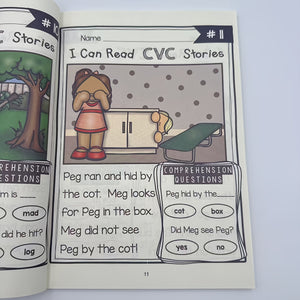 #10
C Stories
COMPREHENSION
QUESTIONS
im is
mad
did he hit?
log
# 11
Name
I Can Read CVC Stories
Peg ran and hid by
the cot. Meg looks
for Peg in the box.
Meg did not see
Peg by the cot!
COMPREHENSION
QUESTIONS
Peg hid by the
cot box
Did Meg see Peg?
yes no
11